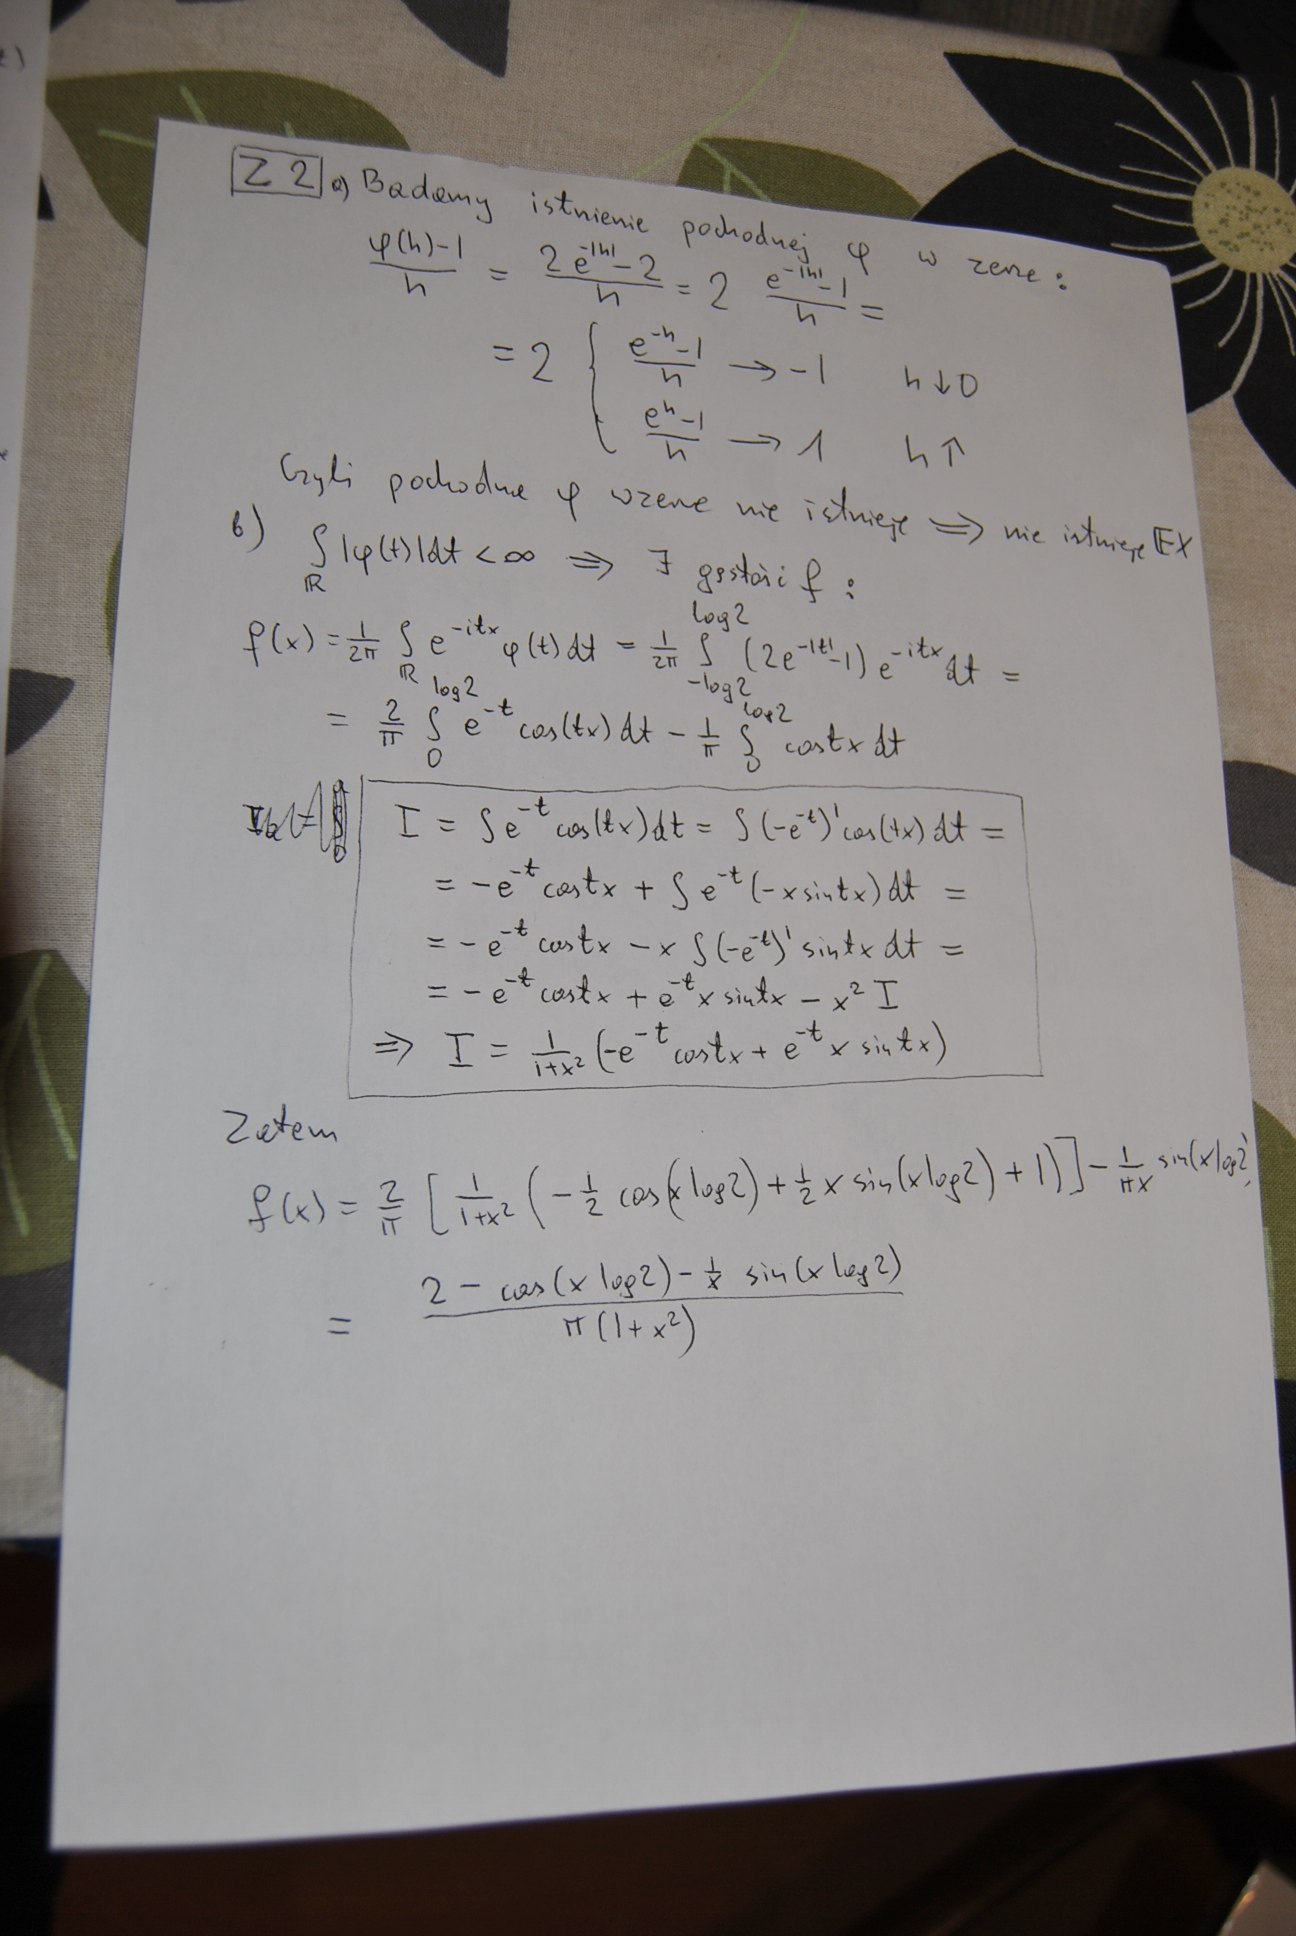 Z 2 a) Badamy istnienie pochodnej φ w zerze :
(φ(h)-1)/h = (2e^{-|h|}-2)/h = 2 (e^{-|h|}-1)/h =
= 2 { (e^{-h}-1)/h → -1   h↓0
(e^{h}-1)/h → 1   h↑
Czyli pochodna φ w zerze nie istnieje ⇒ nie istnieje EX
b) ∫_ℝ |φ(t)|dt < ∞ ⇒ ∃ gęstość f :
f(x) = 1/2π ∫_ℝ e^{-itx} φ(t) dt = 1/2π ∫_{-log2}^{log2} (2e^{-|t|}-1) e^{-itx} dt =
= 2/π ∫_0^{log2} e^{-t} cos(tx) dt - 1/π ∫_0^{log2} cos tx dt
I = ∫e^{-t} cos(tx)dt = ∫(-e^{-t})' cos(tx) dt =
= -e^{-t} cos tx + ∫ e^{-t} (-x sin tx) dt =
= -e^{-t} cos tx - x ∫(-e^{-t})' sin tx dt =
= -e^{-t} cos tx + e^{-t} x sin tx - x² I
⇒ I = 1/(1+x²) (-e^{-t} cos tx + e^{-t} x sin tx)
Zatem
f(x) = 2/π [ 1/(1+x²) ( -1/2 cos(x log2) + 1/2 x sin(x log2) + 1) ] - 1/πx sin(x log2)
= (2 - cos(x log2) - 1/x sin(x log2))/(π(1+x²))